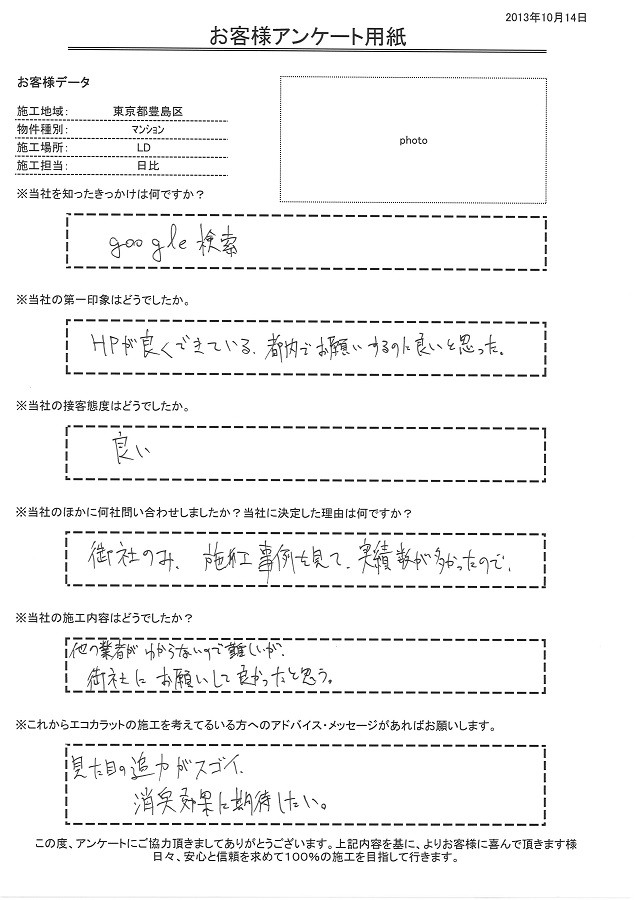 2013年10月14日
お客様アンケート用紙
お客様データ
施工地域: 東京都豊島区
物件種別: マンション
施工場所: LD
施工担当: 日比
photo
※当社を知ったきっかけは何ですか？
google 検索
※当社の第一印象はどうでしたか。
HPが良くできている、都内でお願いするのに良いと思った。
※当社の接客態度はどうでしたか。
良い
※当社のほかに何社問い合わせしましたか？当社に決定した理由は何ですか？
御社のみ、施工事例を見て、実績数が多かったので、
※当社の施工内容はどうでしたか？
他の業者がわからないので難しいが、
御社にお願いして良かったと思う。
※これからエコカラットの施工を考えてるいる方へのアドバイス・メッセージがあればお願いします。
見た目の迫力がスゴイ、
消臭効果に期待したい。
この度、アンケートにご協力頂きましてありがとうございます。上記内容を基に、よりお客様に喜んで頂きます様
日々、安心と信頼を求めて100%の施工を目指して行きます。